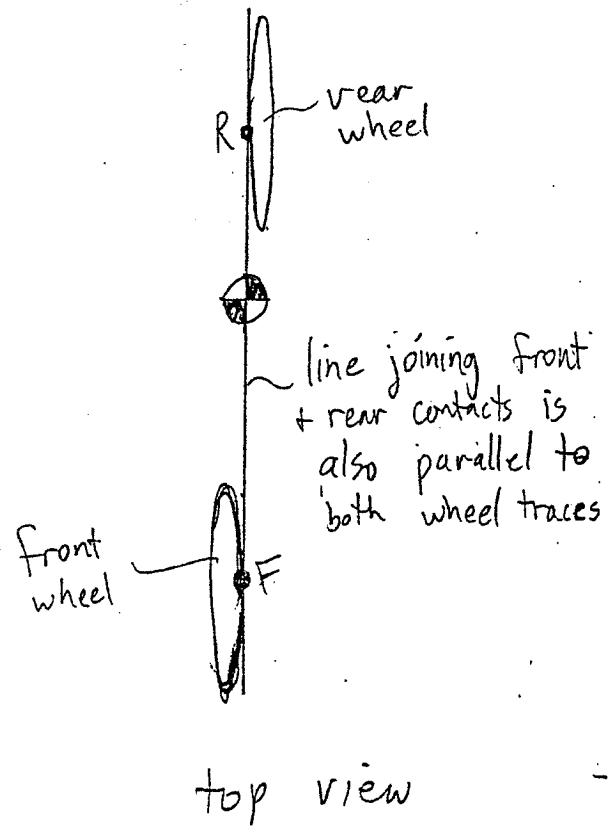 rear
wheel
R
line joining front
+ rear contacts is
also parallel to
both wheel traces
front
wheel
F
top view